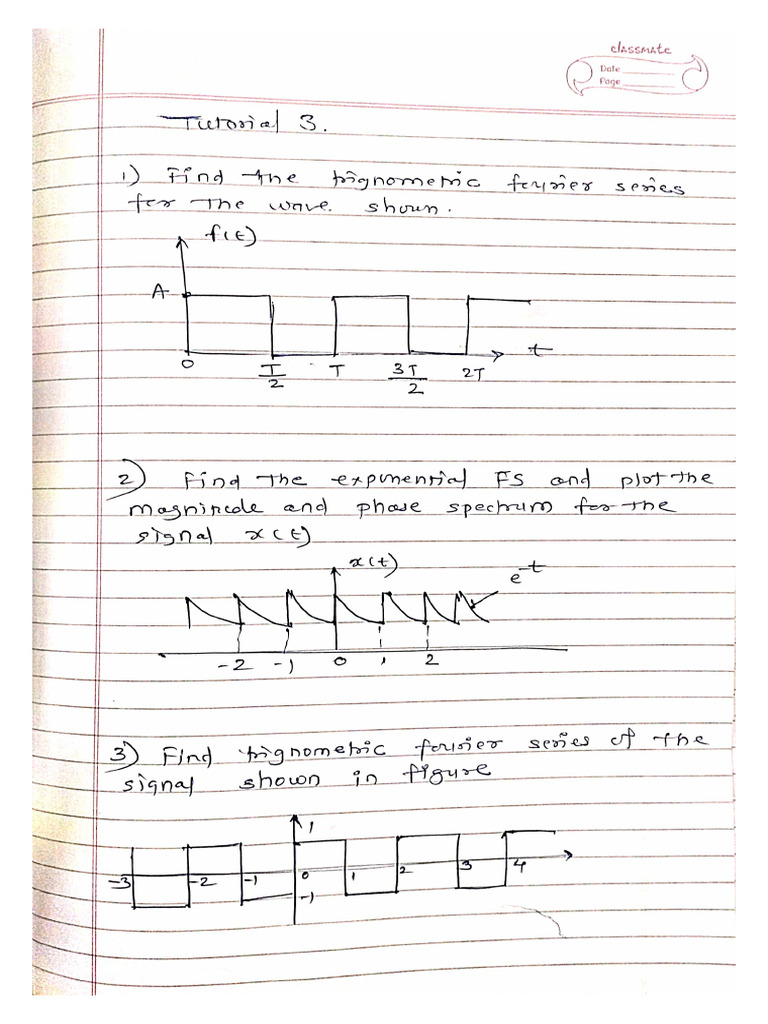 classmate
Date
Page
Tutorial 3.
1) Find the trignometric fourier series
for the wave shown.
f(t)
A
0 T/2 T 3T/2 2T t
2) Find the exponential FS and plot the
magnitude and phase spectrum for the
signal x(t)
x(t)
e^-t
-2 -1 0 1 2
3) Find trignometric fourier series of the
signal shown in figure
1
-3 -2 -1 0 1 2 3 4
-1